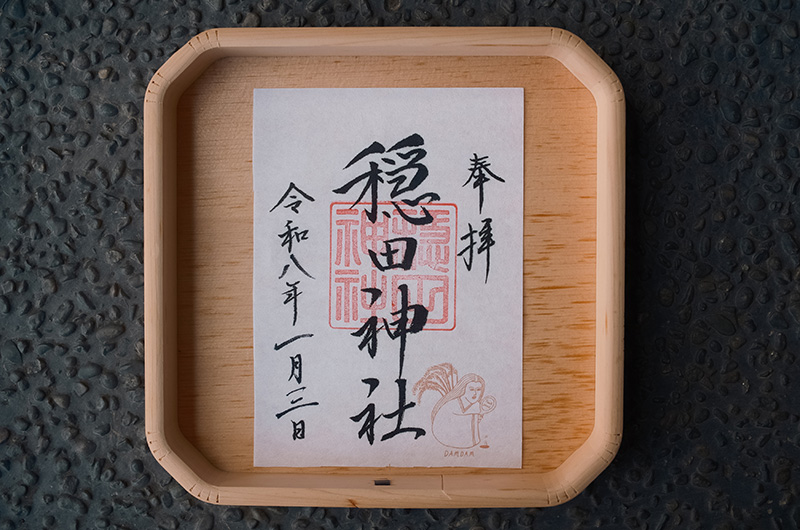 奉拝
穏田神社
令和八年一月三日
DAMDAM